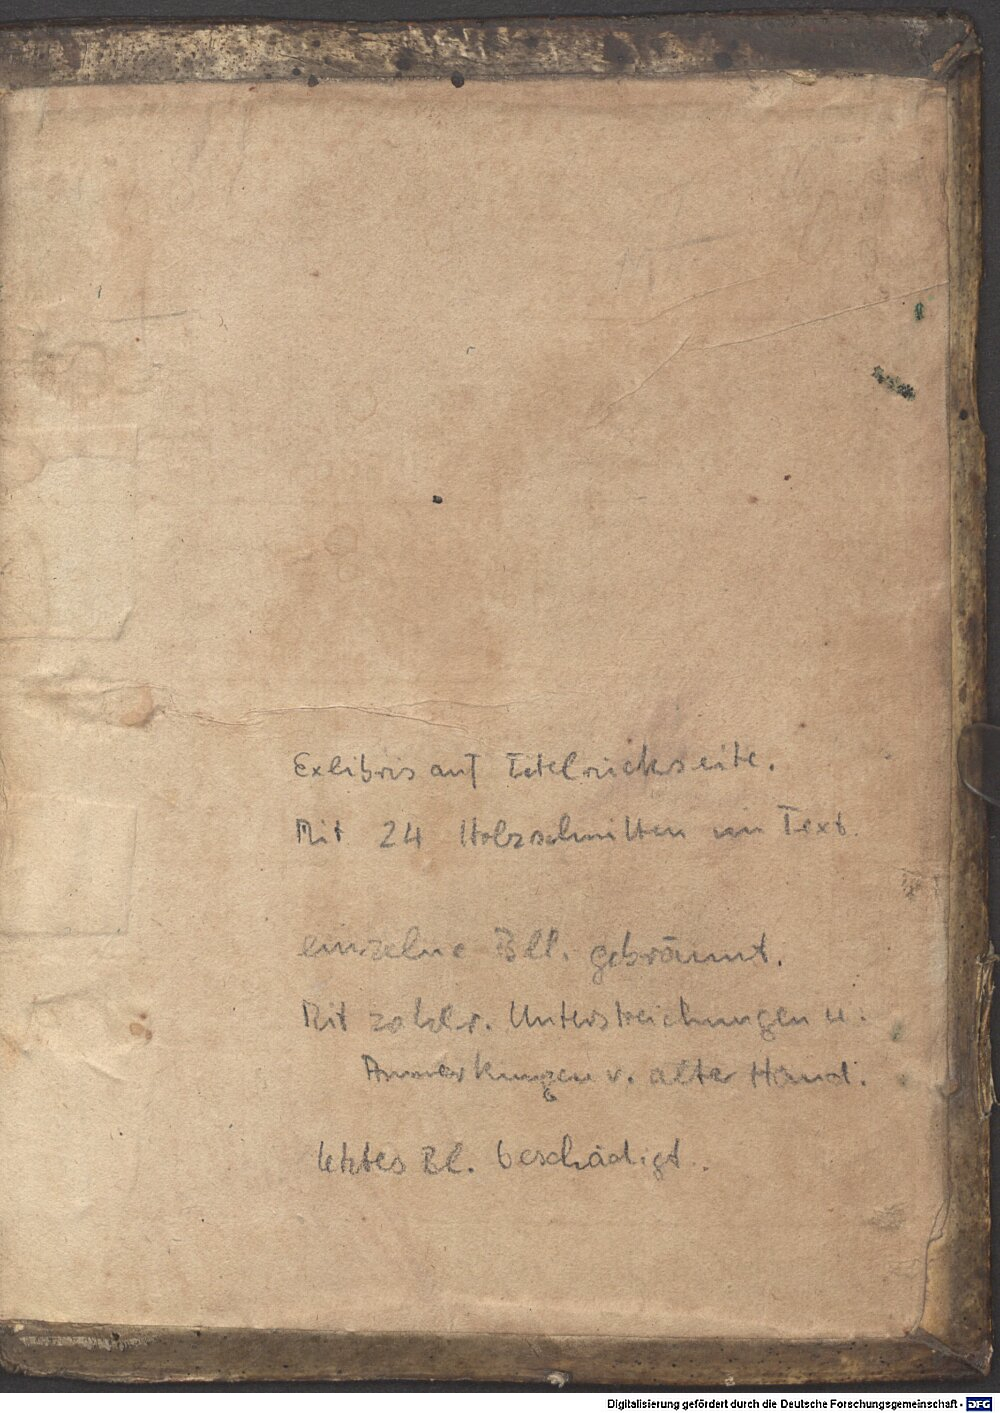 Exlibris auf Titelrückseite.
Mit 24 Holzschnitten im Text.
einzelne Bll. gebräunt.
Mit zahlr. Unterstreichungen u.
Anmerkungen v. alter Hand.
letztes Bl. beschädigt.
Digitalisierung gefördert durch die Deutsche Forschungsgemeinschaft - DFG